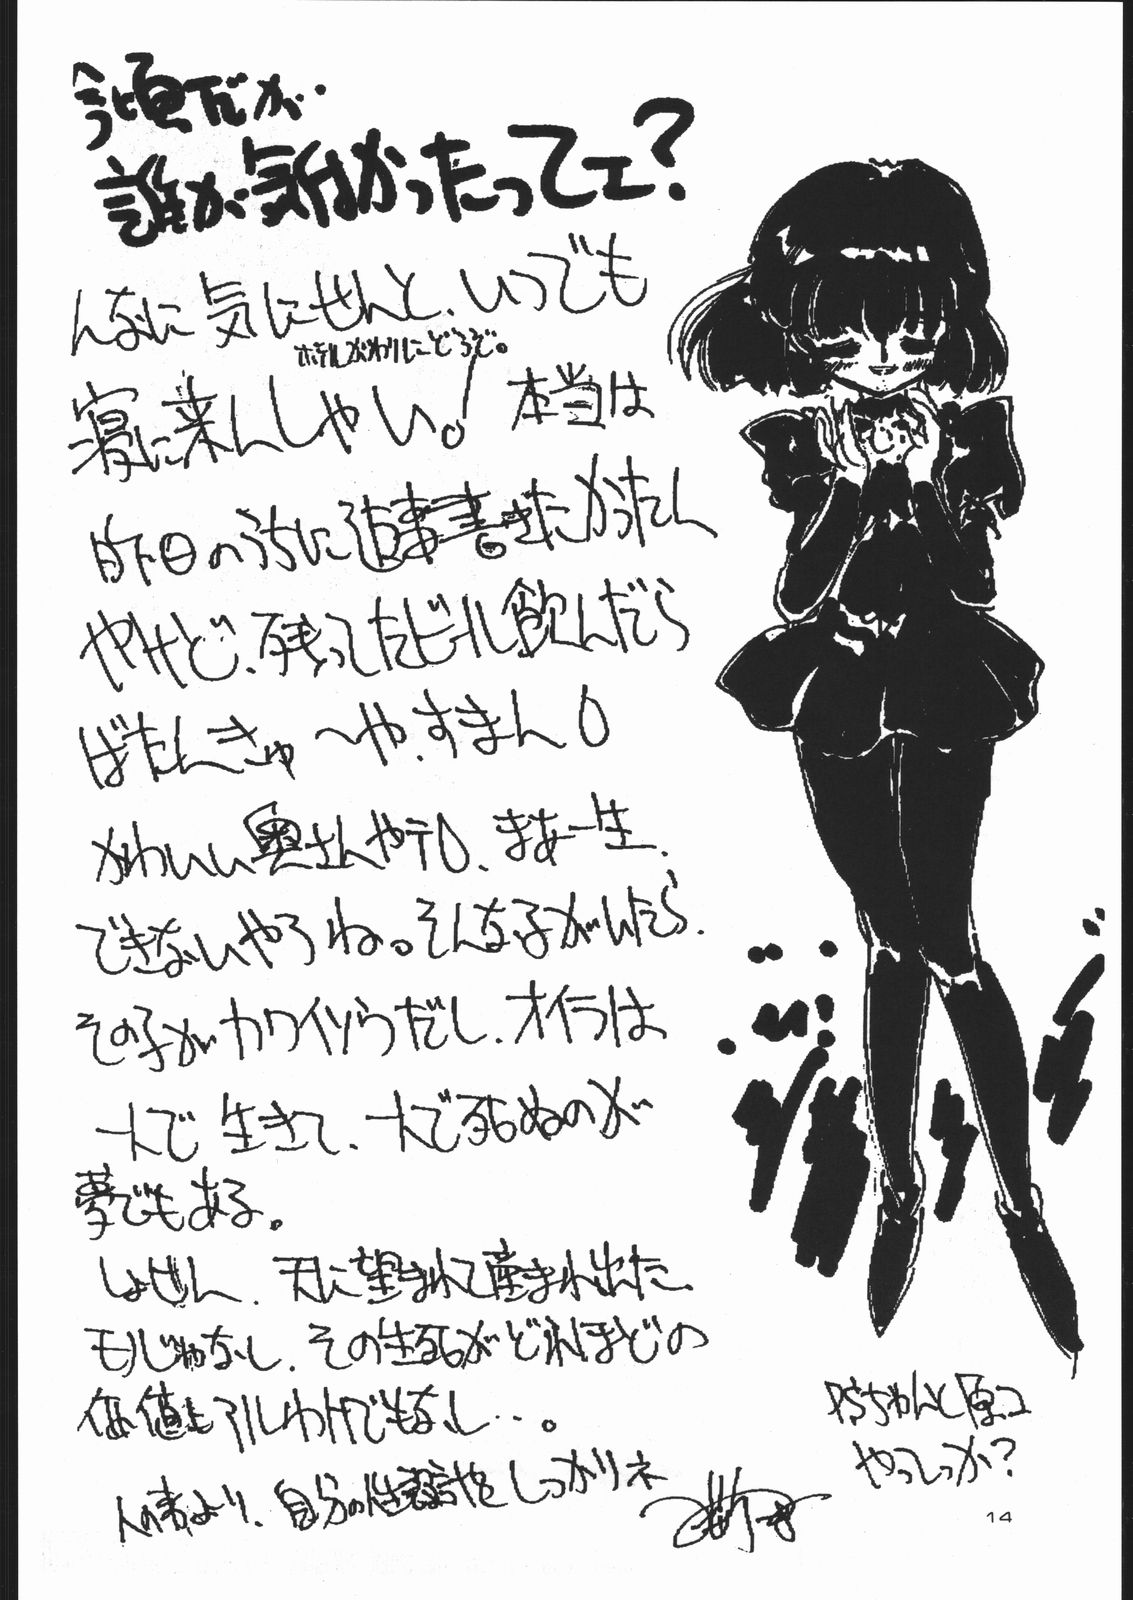 今頃だが・・
誰が気付かったってェ?
んなに気にせんと、いつでも
ホテルがわりにどうぞ。
寝に来んしゃい。! 本当は
昨日のうちに返事書きたかったん
やけど、残ってたビール飲んだら
ばたんきゅ〜や、すまん
かわいい奥さんや、まあ一生、
できないやろね。そんな子がいたら、
その子がカワイソウだし、オイラは
一人で生きて、一人で死ぬのが
夢でもある。
しょせん、天に望まれて産まれ出た
モノじゃなし、その生死がどれほどの
価値もアルわけでもなし・・・。
人の事より、自分の生活をしっかりネ
ちゃんと原コ
やってっか?
14